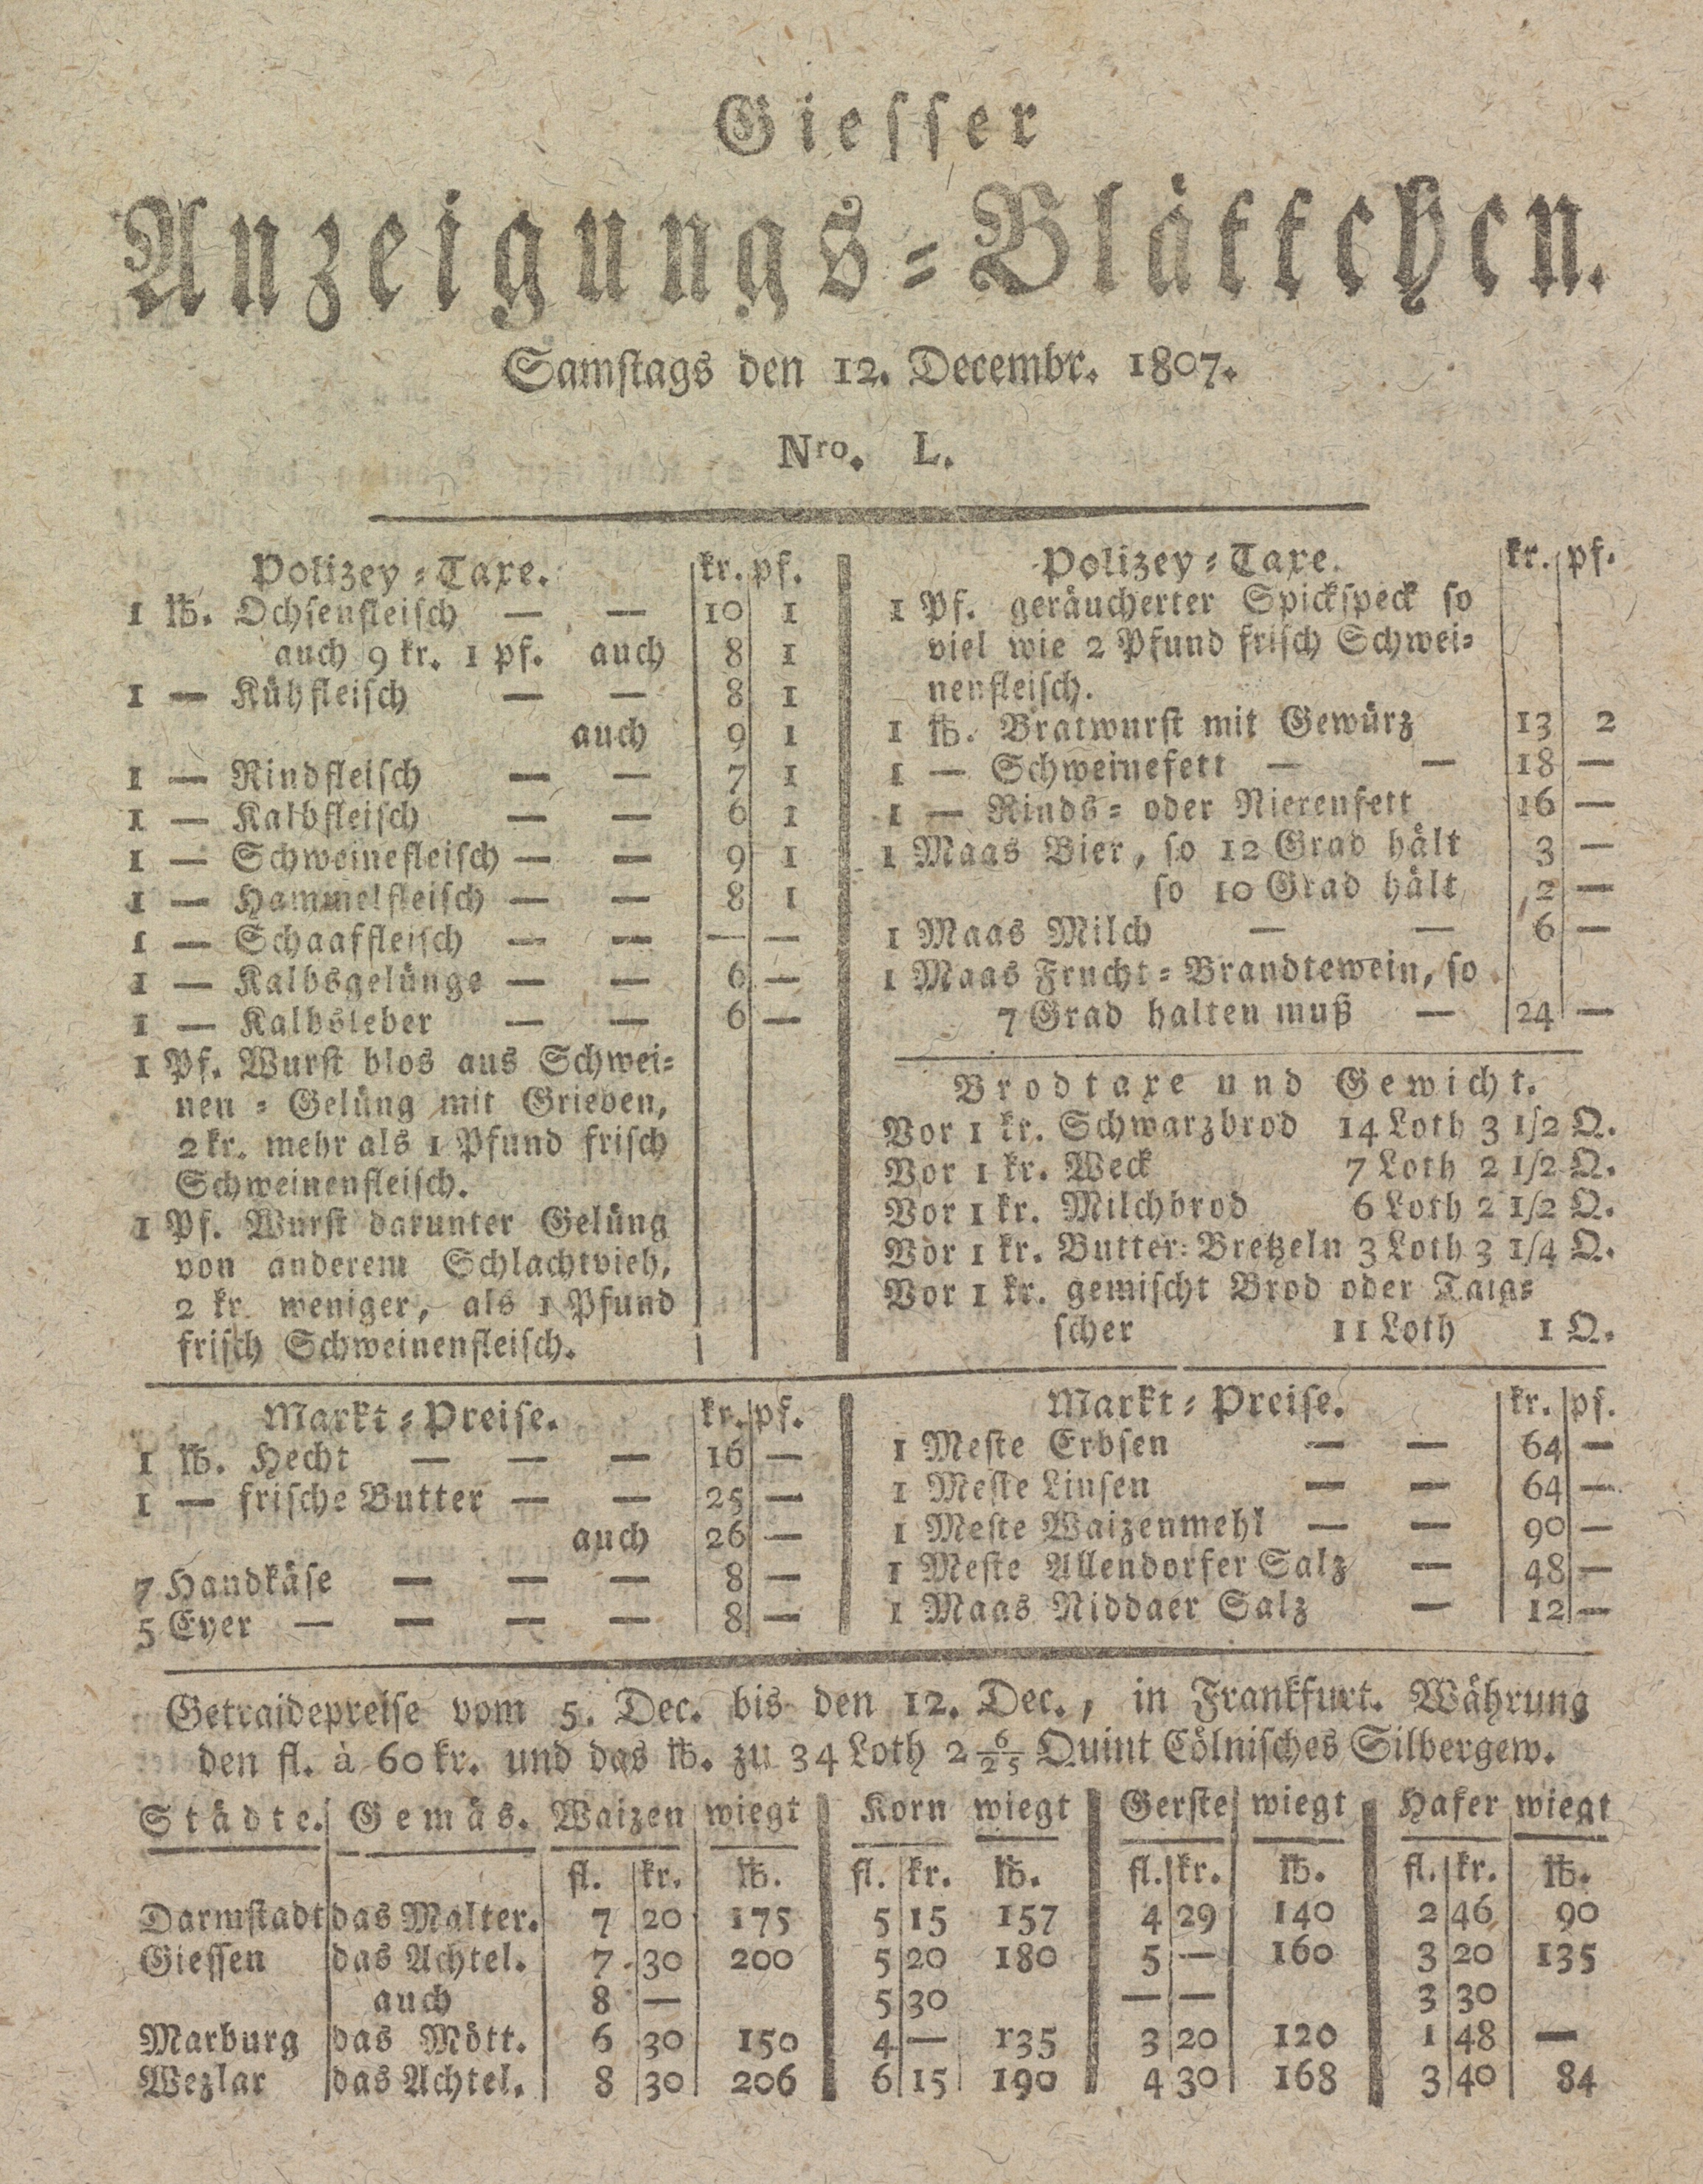 Giesser
Anzeigungs-Blättchen.
Samstags den 12. Decembr. 1807.
Nro. L.
Polizey-Taxe. kr. pf.
1 ℔. Ochsenfleisch — — 10 1
auch 9 kr. 1 pf. auch 8 1
1 — Kühfleisch — — 8 1
auch 9 1
1 — Rindfleisch — — 7 1
1 — Kalbfleisch — — 6 1
1 — Schweinefleisch — — 9 1
1 — Hammelfleisch — — 8 1
1 — Schaaffleisch — — — —
1 — Kalbsgelünge — — 6 —
1 — Kalbsleber — — 6 —
1 Pf. Wurst blos aus Schwei-
nen-Gelüng mit Grieben,
2 kr. mehr als 1 Pfund frisch
Schweinenfleisch.
1 Pf. Wurst darunter Gelüng
von anderem Schlachtvieh,
2 kr. weniger, als 1 Pfund
frisch Schweinenfleisch.
Polizey-Taxe. kr. pf.
1 Pf. geräucherter Spickspeck so
viel wie 2 Pfund frisch Schwei-
nenfleisch.
1 ℔. Bratwurst mit Gewürz 13 2
1 — Schweinefett — — 18 —
1 — Rinds- oder Nierenfett 16 —
1 Maas Bier, so 12 Grad hält 3 —
so 10 Grad hält 2 —
1 Maas Milch — — 6 —
1 Maas Frucht-Brandtewein, so
7 Grad halten muß — 24 —
Brodtaxe und Gewicht.
Vor 1 kr. Schwarzbrod 14 Loth 3 1/2 Q.
Vor 1 kr. Weck 7 Loth 2 1/2 Q.
Vor 1 kr. Milchbrod 6 Loth 2 1/2 Q.
Vor 1 kr. Butter-Bretzeln 3 Loth 3 1/4 Q.
Vor 1 kr. gemischt Brod oder Taig-
scher 11 Loth 1 Q.
Markt-Preise. kr. pf.
1 ℔. Hecht — — — 16 —
1 — frische Butter — — 25 —
auch 26 —
7 Handkäse — — — 8 —
5 Eyer — — — — 8 —
Markt-Preise. kr. pf.
1 Meste Erbsen — — 64 —
1 Meste Linsen — — 64 —
1 Meste Waizenmehl — — 90 —
1 Meste Allendorfer Salz — 48 —
1 Maas Niddaer Salz — 12 —
Getraidepreise vom 5. Dec. bis den 12. Dec., in Frankfurt. Währung
den fl. à 60 kr. und das ℔. zu 34 Loth 2 6/25 Quint Cölnisches Silbergew.
Städte. Gemäs. Waizen wiegt Korn wiegt Gerste wiegt Hafer wiegt
fl. kr. ℔. fl. kr. ℔. fl. kr. ℔. fl. kr. ℔.
Darmstadt das Malter. 7 20 175 5 15 157 4 29 140 2 46 90
Giessen das Achtel. 7 30 200 5 20 180 5 — 160 3 20 135
auch 8 — 5 30 — — 3 30
Marburg das Mött. 6 30 150 4 — 135 3 20 120 1 48 —
Wezlar das Achtel. 8 30 206 6 15 190 4 30 168 3 40 84